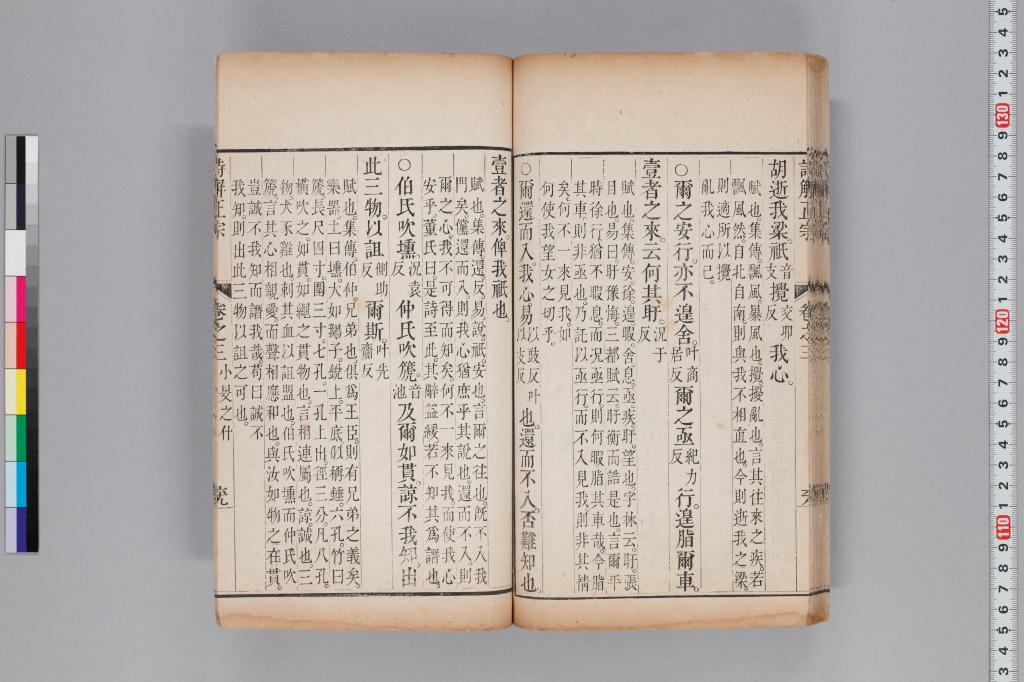 胡逝我梁。祇音支攪交卯反我心。
賦也。集傳。飄風。暴風也。攪擾亂也。言其往來之疾。若
飄風然。自北自南。則與我不相直也。今則逝我之梁。
則適所以攪
亂我心而已。
○爾之安行。亦不遑舍。叶商居反爾之亟紀力反行。遑脂爾車。
壹者之來。云何其盱。況于反
賦也。集傳。安徐。遑暇。舍息。亟疾。盱。望也。字林云。盱。張
目也。易曰。盱豫悔。三都賦云。盱衡而誥是也。言爾平
時徐行。猶不暇息。而況亟行則何暇脂其車哉。今脂
其車。則非亟也。乃託以亟行而不入見我。則非其情
矣。何不一來見我。如
何使我望女之切乎。
○爾還而入。我心易以豉反叶以支反也。還而不入。否難知也。
壹者之來。俾我祇也。
賦也。集傳。還。反。易。說。祇。安也。言爾之往也。旣不入我
門矣。儻還而入。則我心猶庶乎其說也。還而不入。則
爾之心。我不可得而知矣。何不一來見我。而使我心
安乎。董氏曰。是詩至此。其辭益緩。若不知其爲譖也。
○伯氏吹壎。況袁反仲氏吹篪。音池及爾如貫。諒不我知。出
此三物。以詛側助反爾斯。叶先齎反
賦也。集傳。伯仲。兄弟也。俱爲王臣。則有兄弟之義矣。
樂器土曰壎。大如鵝子。銳上。平底。似稱錘。六孔。竹曰
篪。長尺四寸。圍三寸。七孔。一孔上出。徑三分。凡八孔。
橫吹之。如貫。如繩之貫物也。言相連屬也。諒。誠也。三
物。犬豕雞也。刺其血以詛盟也。伯氏吹壎。而仲氏吹
篪。言其心相親愛。而聲相應和也。與汝如物之在貫。
豈誠不我知而譖我哉。苟曰誠不
我知。則出此三物以詛之可也。
詩解正宗 卷之三 小旻之什